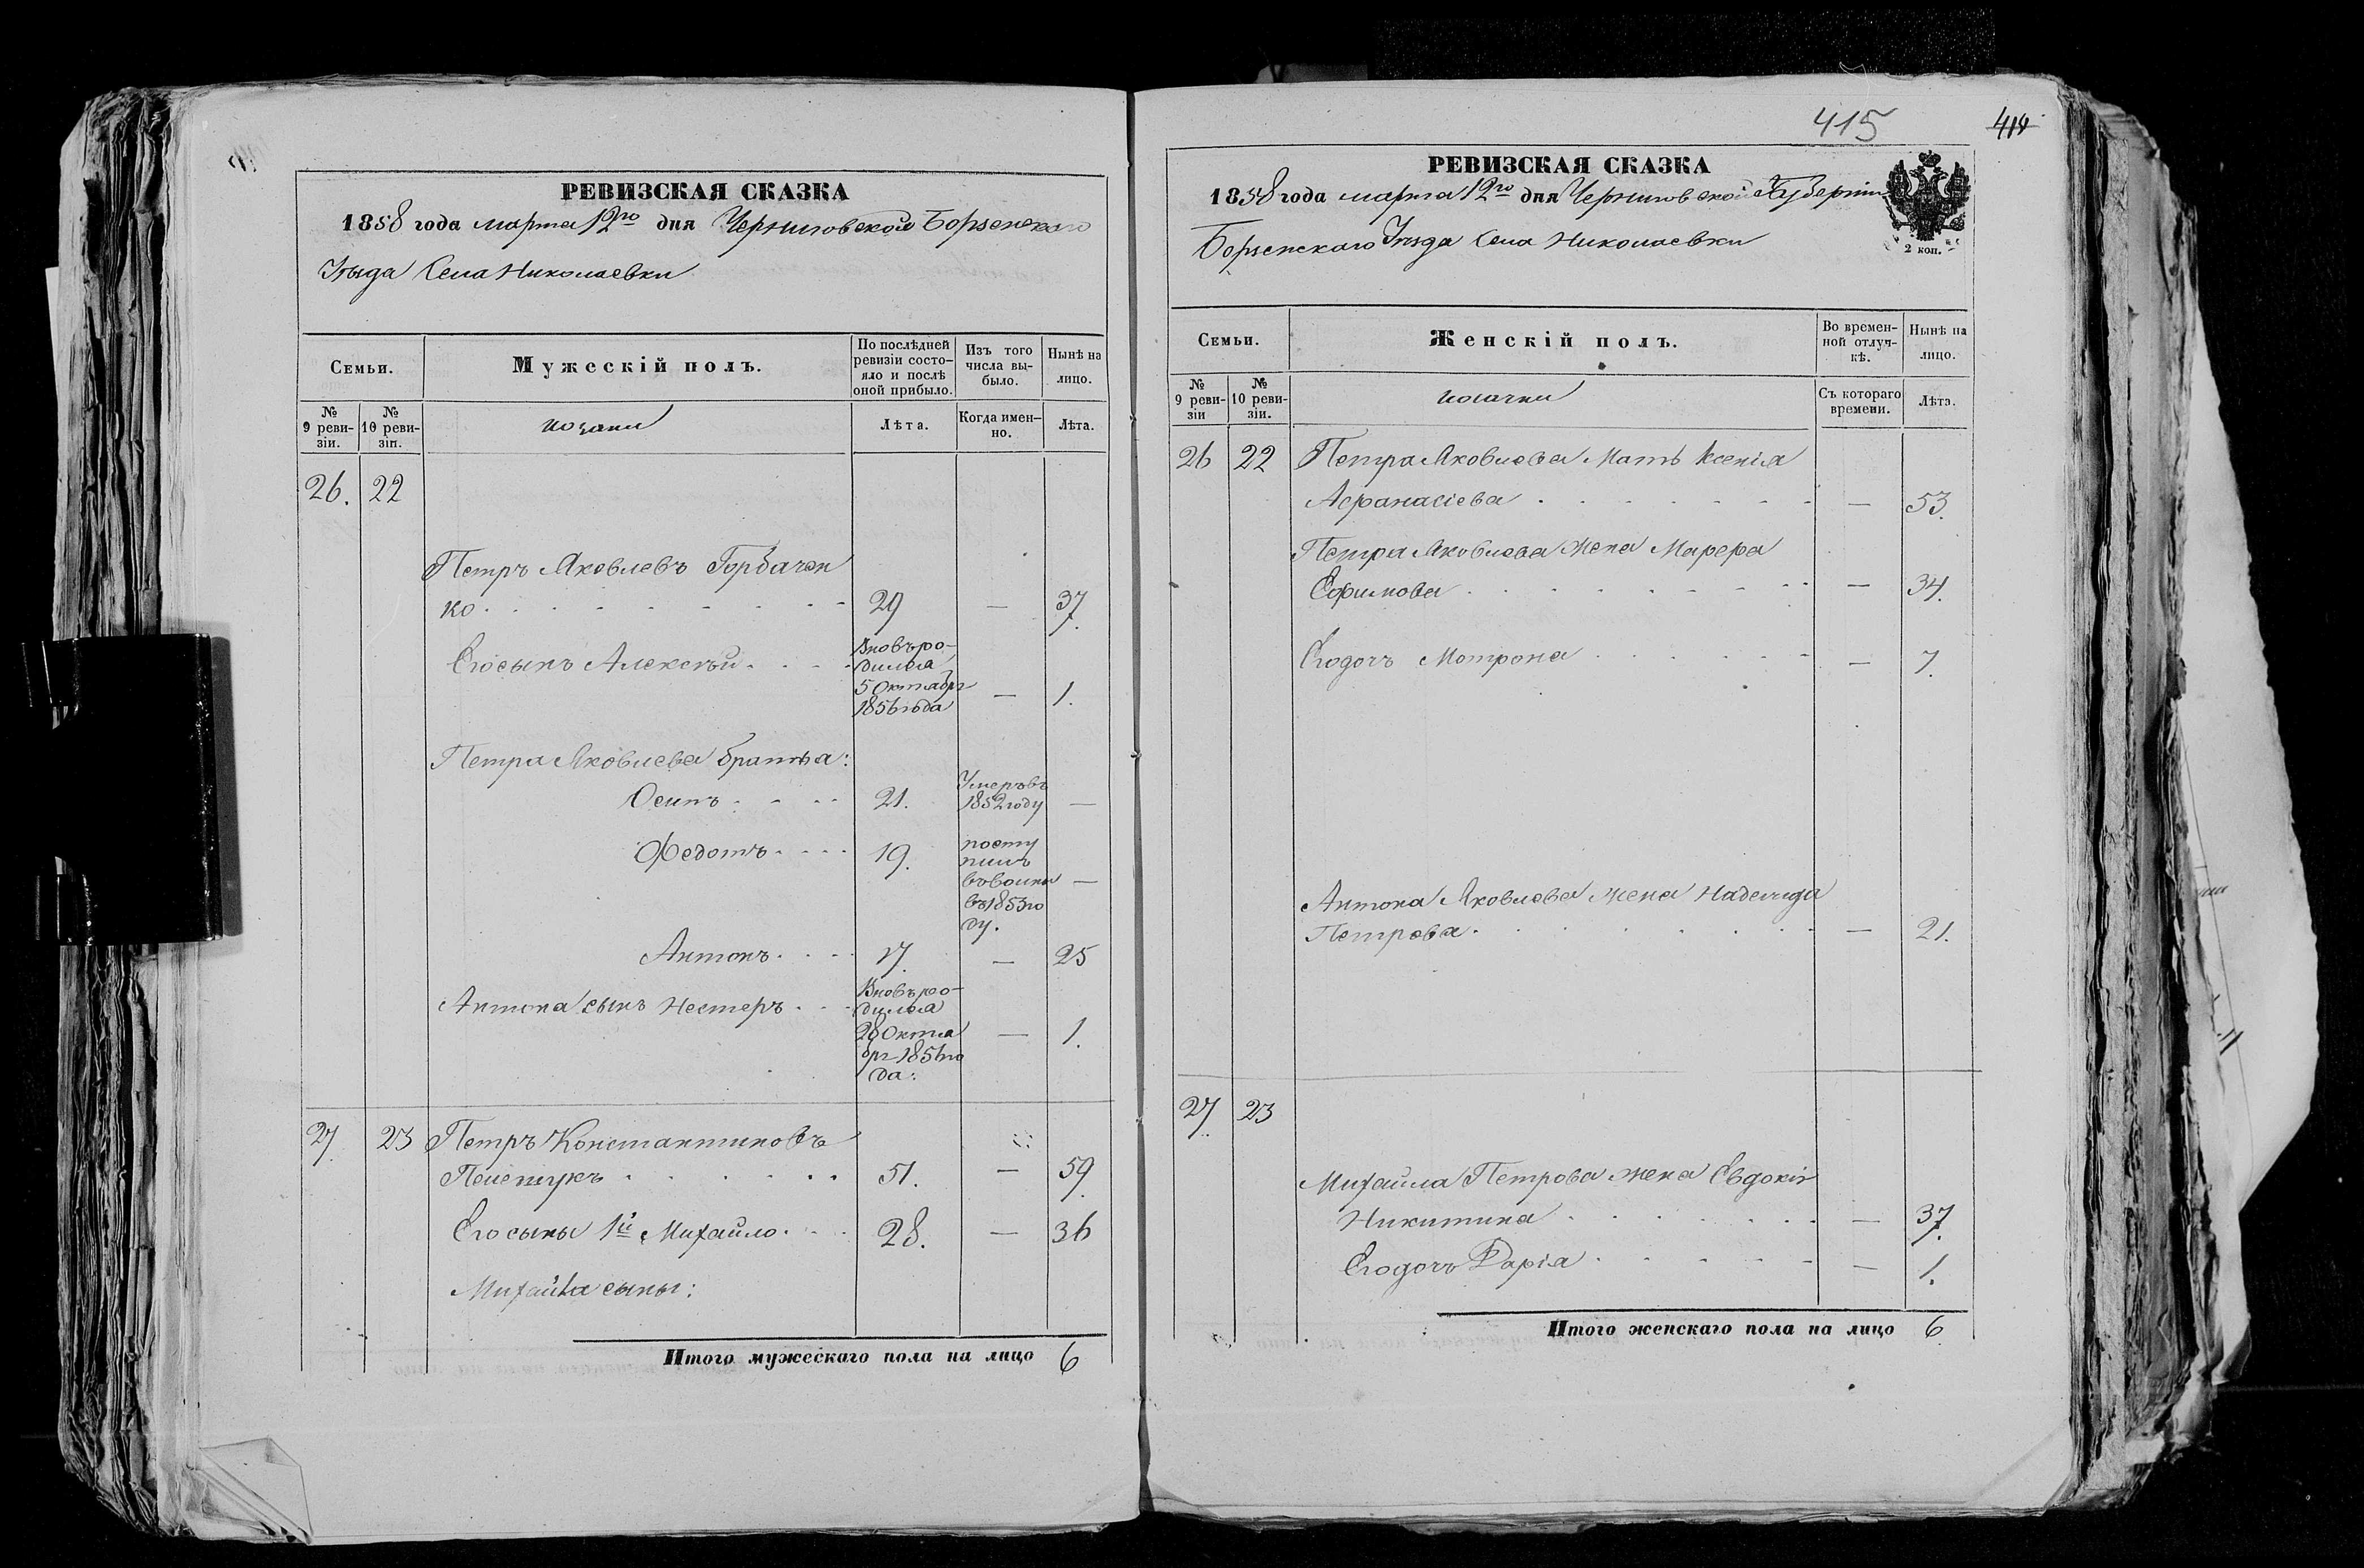 РЕВИЗСКАЯ СКАЗКА
1858 года марта 12го дня Черниговской Борзенскаго
Уѣзда Села Николаевки
Семьи.
Мужескій полъ.
По послѣдней
ревизіи состо-
яло и послѣ
оной прибыло.
Изъ того
числа вы-
было.
Нынѣ на
лицо.
№
9 реви-
зіи.
№
10 реви-
зіи.
козаки
Лѣта.
Когда имен-
но.
Лѣта.
26. 22
Петръ Яковлевъ Горбачен
ко 29 — 37.
Его сынъ Алексѣй
Вновь ро-
дился
5 Октября
1856 года — 1.
Петра Яковлева братья:
Осипъ 21. Умеръ въ
1852 году —
Федотъ 19. посту
пилъ
въ воины —
въ 1853 го
ду.
Антонъ 17. — 25
Антона сынъ Нестеръ
Вновь ро-
дился
28 Октя
бря 1856 го
да. — 1.
27. 23 Петръ Константиновъ
51. — 59.
Его сыны 1й Михайло 28. — 36
Михайла сыны:
Итого мужескаго пола на лицо 6
415
414
РЕВИЗСКАЯ СКАЗКА
1858 года марта 12го дня Черниговской Губерніи
Борзенскаго Уѣзда Села Николаевки
2 коп.
Семьи.
Женскій полъ.
Во времен-
ной отлуч-
кѣ.
Нынѣ на
лицо.
№
9 реви-
зіи
№
10 реви-
зіи.
козачки
Съ котораго
времени.
Лѣта.
26 22 Петра Яковлева Мать Ксенія
Афанасіева — 53.
Петра Яковлева жена Марфа
Ефимова — 34.
Его дочь Мотрона — 7.
Антона Яковлева жена Надежда
Петрова — 21.
27. 23
Михайла Петрова жена Евдокія
Никитина — 37.
Его дочь Дарія — 1.
Итого женскаго пола на лицо 6